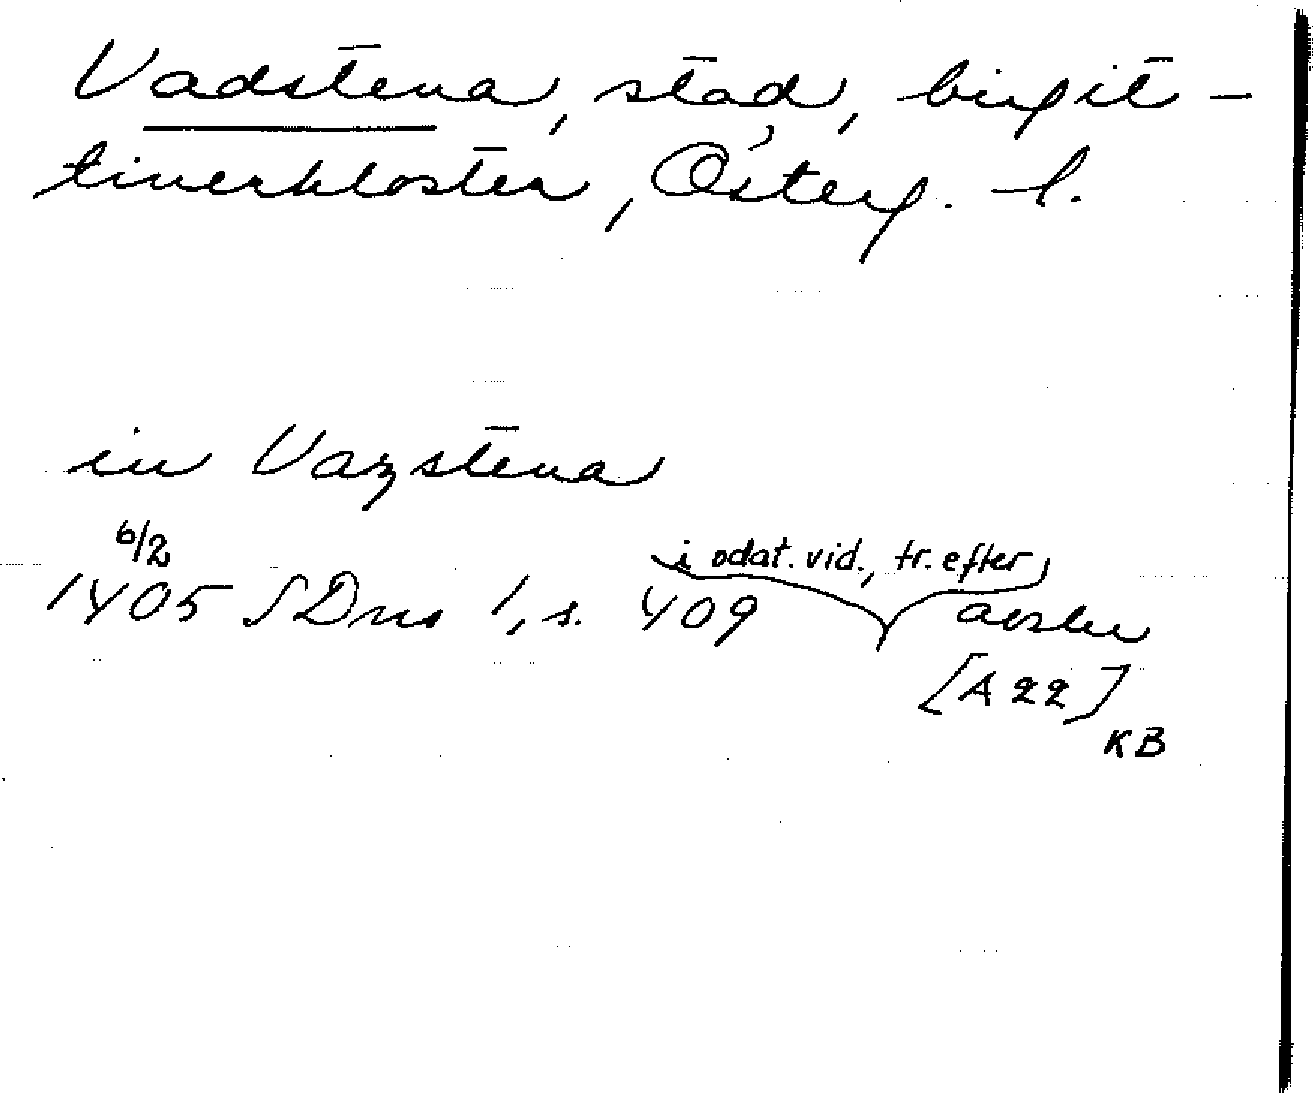 Vadstena, stad, birgit-
tinerkloster, Österg. l.
in Vazstena
6/2
i odat. vid., tr. efter
1405 SDns 1, s. 409 avskr
[A 22]
KB